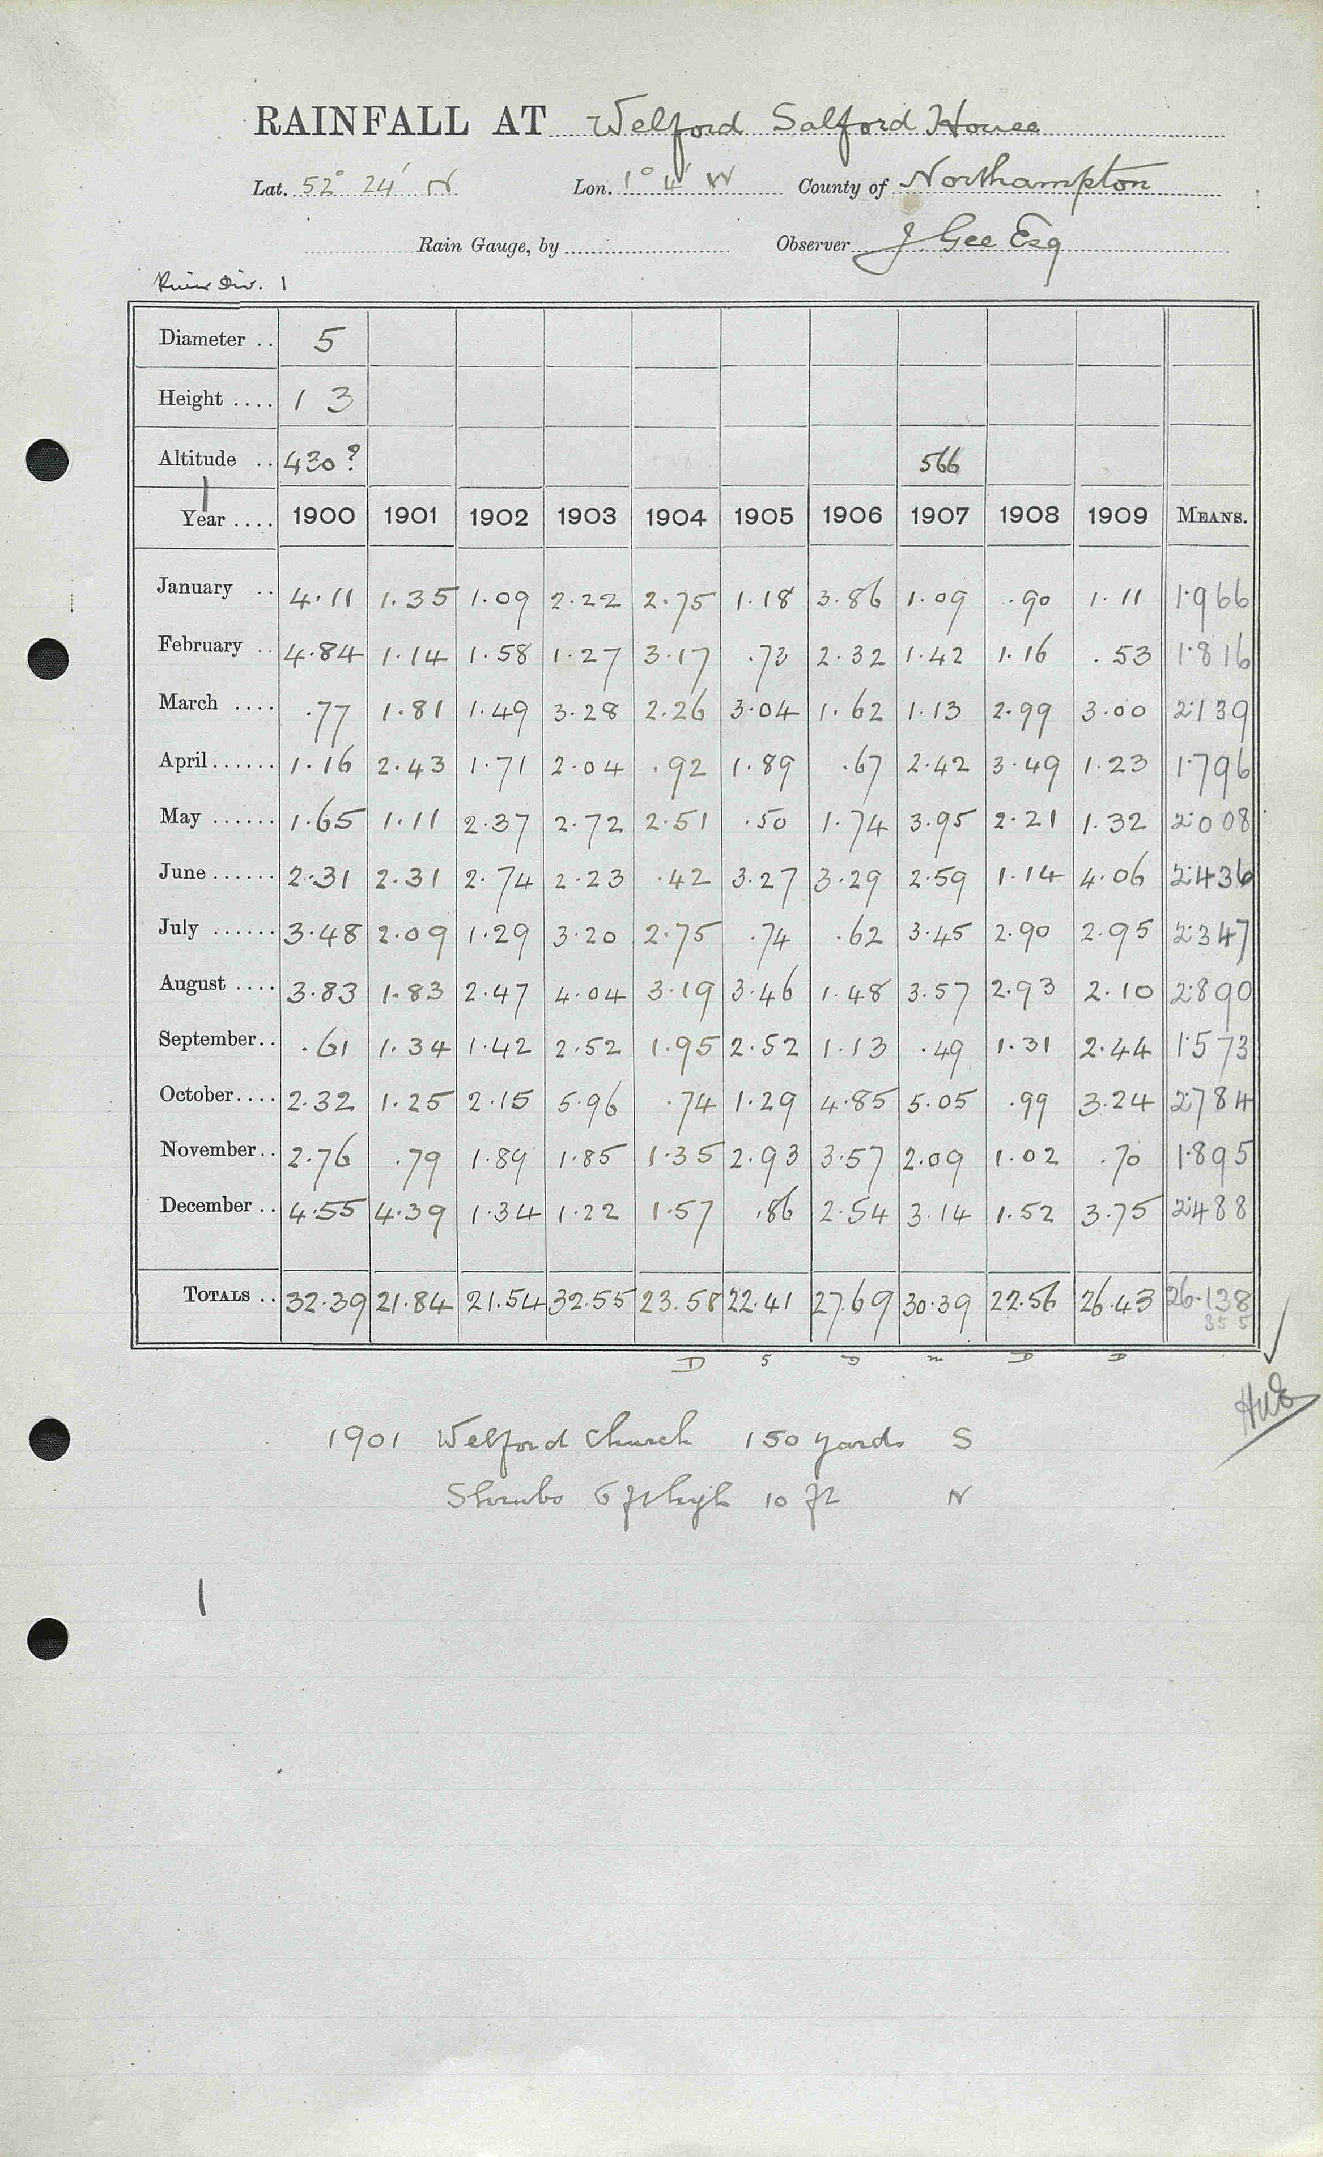 RAINFALL AT Welford Salford House
Lat. 52° 24' N Lon. 1° 4' W County of Northampton
Rain Gauge, by Observer J Gee Esq
River Div. 1
Diameter .. 5
Height .... 1 3
Altitude .. 430? 566
Year .... 1900 1901 1902 1903 1904 1905 1906 1907 1908 1909 MEANS.
January .. 4.11 1.35 1.09 2.22 2.75 1.18 3.86 1.09 .90 1.11 1.966
February .. 4.84 1.14 1.58 1.27 3.17 .73 2.32 1.42 1.16 .53 1.816
March .... .77 1.81 1.49 3.28 2.26 3.04 1.62 1.13 2.99 3.00 2.139
April...... 1.16 2.43 1.71 2.04 .92 1.89 .67 2.42 3.49 1.23 1.796
May ...... 1.65 1.11 2.37 2.72 2.51 .50 1.74 3.95 2.21 1.32 2.008
June...... 2.31 2.31 2.74 2.23 .42 3.27 3.29 2.59 1.14 4.06 2.436
July ...... 3.48 2.09 1.29 3.20 2.75 .74 .62 3.45 2.90 2.95 2.347
August .... 3.83 1.83 2.47 4.04 3.19 3.46 1.48 3.57 2.93 2.10 2.890
September.. .61 1.34 1.42 2.52 1.95 2.52 1.13 .49 1.31 2.44 1.573
October.... 2.32 1.25 2.15 5.96 .74 1.29 4.85 5.05 .99 3.24 2.784
November.. 2.76 .79 1.89 1.85 1.35 2.93 3.57 2.09 1.02 .70 1.895
December .. 4.55 4.39 1.34 1.22 1.57 .86 2.54 3.14 1.52 3.75 2.488
TOTALS .. 32.39 21.84 21.54 32.55 23.58 22.41 27.69 30.39 22.56 26.43 26.138
D S D m D D
1901 Welford Church 150 yards S
Shrubs 6 ft high 10 ft N
1